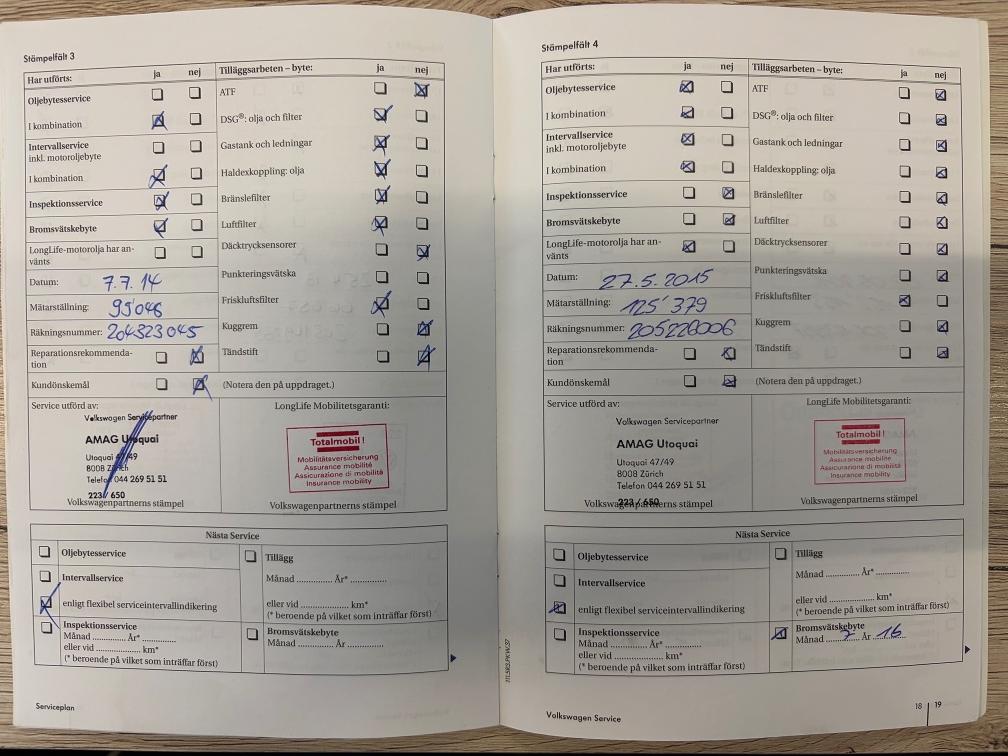 Stämpelfält 3
Har utförts: ja nej
Oljebytesservice
I kombination
Intervallservice
inkl. motoroljebyte
I kombination
Inspektionsservice
Bromsvätskebyte
LongLife-motorolja har an-
vänts
Datum: 7.7.14
Mätarställning: 95'046
Räkningsnummer: 204323045
Reparationsrekommenda-
tion
Kundönskemål
Tilläggsarbeten – byte: ja nej
ATF
DSG®: olja och filter
Gastank och ledningar
Haldexkoppling: olja
Bränslefilter
Luftfilter
Däcktrycksensorer
Punkteringsvätska
Friskluftsfilter
Kuggrem
Tändstift
(Notera den på uppdraget.)
Service utförd av:
Volkswagen Servicepartner
AMAG Utoquai
Utoquai 47/49
8008 Zürich
Telefon 044 269 51 51
223 / 650
Volkswagenpartnerns stämpel
LongLife Mobilitetsgaranti:
Totalmobil!
Mobilitätsversicherung
Assurance mobilité
Assicurazione di mobilità
Insurance mobility
Volkswagenpartnerns stämpel
Nästa Service
Oljebytesservice
Intervallservice
enligt flexibel serviceintervallindikering
Inspektionsservice
Månad ............ År* ............
eller vid .................... km*
(* beroende på vilket som inträffar först)
Tillägg
Månad ............. År* .............
eller vid .................... km*
(* beroende på vilket som inträffar först)
Bromsvätskebyte
Månad ............ År ............
Serviceplan
Stämpelfält 4
Har utförts: ja nej
Oljebytesservice
I kombination
Intervallservice
inkl. motoroljebyte
I kombination
Inspektionsservice
Bromsvätskebyte
LongLife-motorolja har an-
vänts
Datum: 27.5.2015
Mätarställning: 125'379
Räkningsnummer: 205226006
Reparationsrekommenda-
tion
Kundönskemål
Tilläggsarbeten – byte: ja nej
ATF
DSG®: olja och filter
Gastank och ledningar
Haldexkoppling: olja
Bränslefilter
Luftfilter
Däcktrycksensorer
Punkteringsvätska
Friskluftsfilter
Kuggrem
Tändstift
(Notera den på uppdraget.)
Service utförd av:
Volkswagen Servicepartner
AMAG Utoquai
Utoquai 47/49
8008 Zürich
Telefon 044 269 51 51
223 / 650
Volkswagenpartnerns stämpel
LongLife Mobilitetsgaranti:
Totalmobil!
Mobilitätsversicherung
Assurance mobilité
Assicurazione di mobilità
Insurance mobility
Volkswagenpartnerns stämpel
Nästa Service
Oljebytesservice
Intervallservice
enligt flexibel serviceintervallindikering
Inspektionsservice
Månad ............ År* ............
eller vid .................... km*
(* beroende på vilket som inträffar först)
Tillägg
Månad ............. År* .............
eller vid .................... km*
(* beroende på vilket som inträffar först)
Bromsvätskebyte
Månad 7 År 16
Volkswagen Service
18 | 19